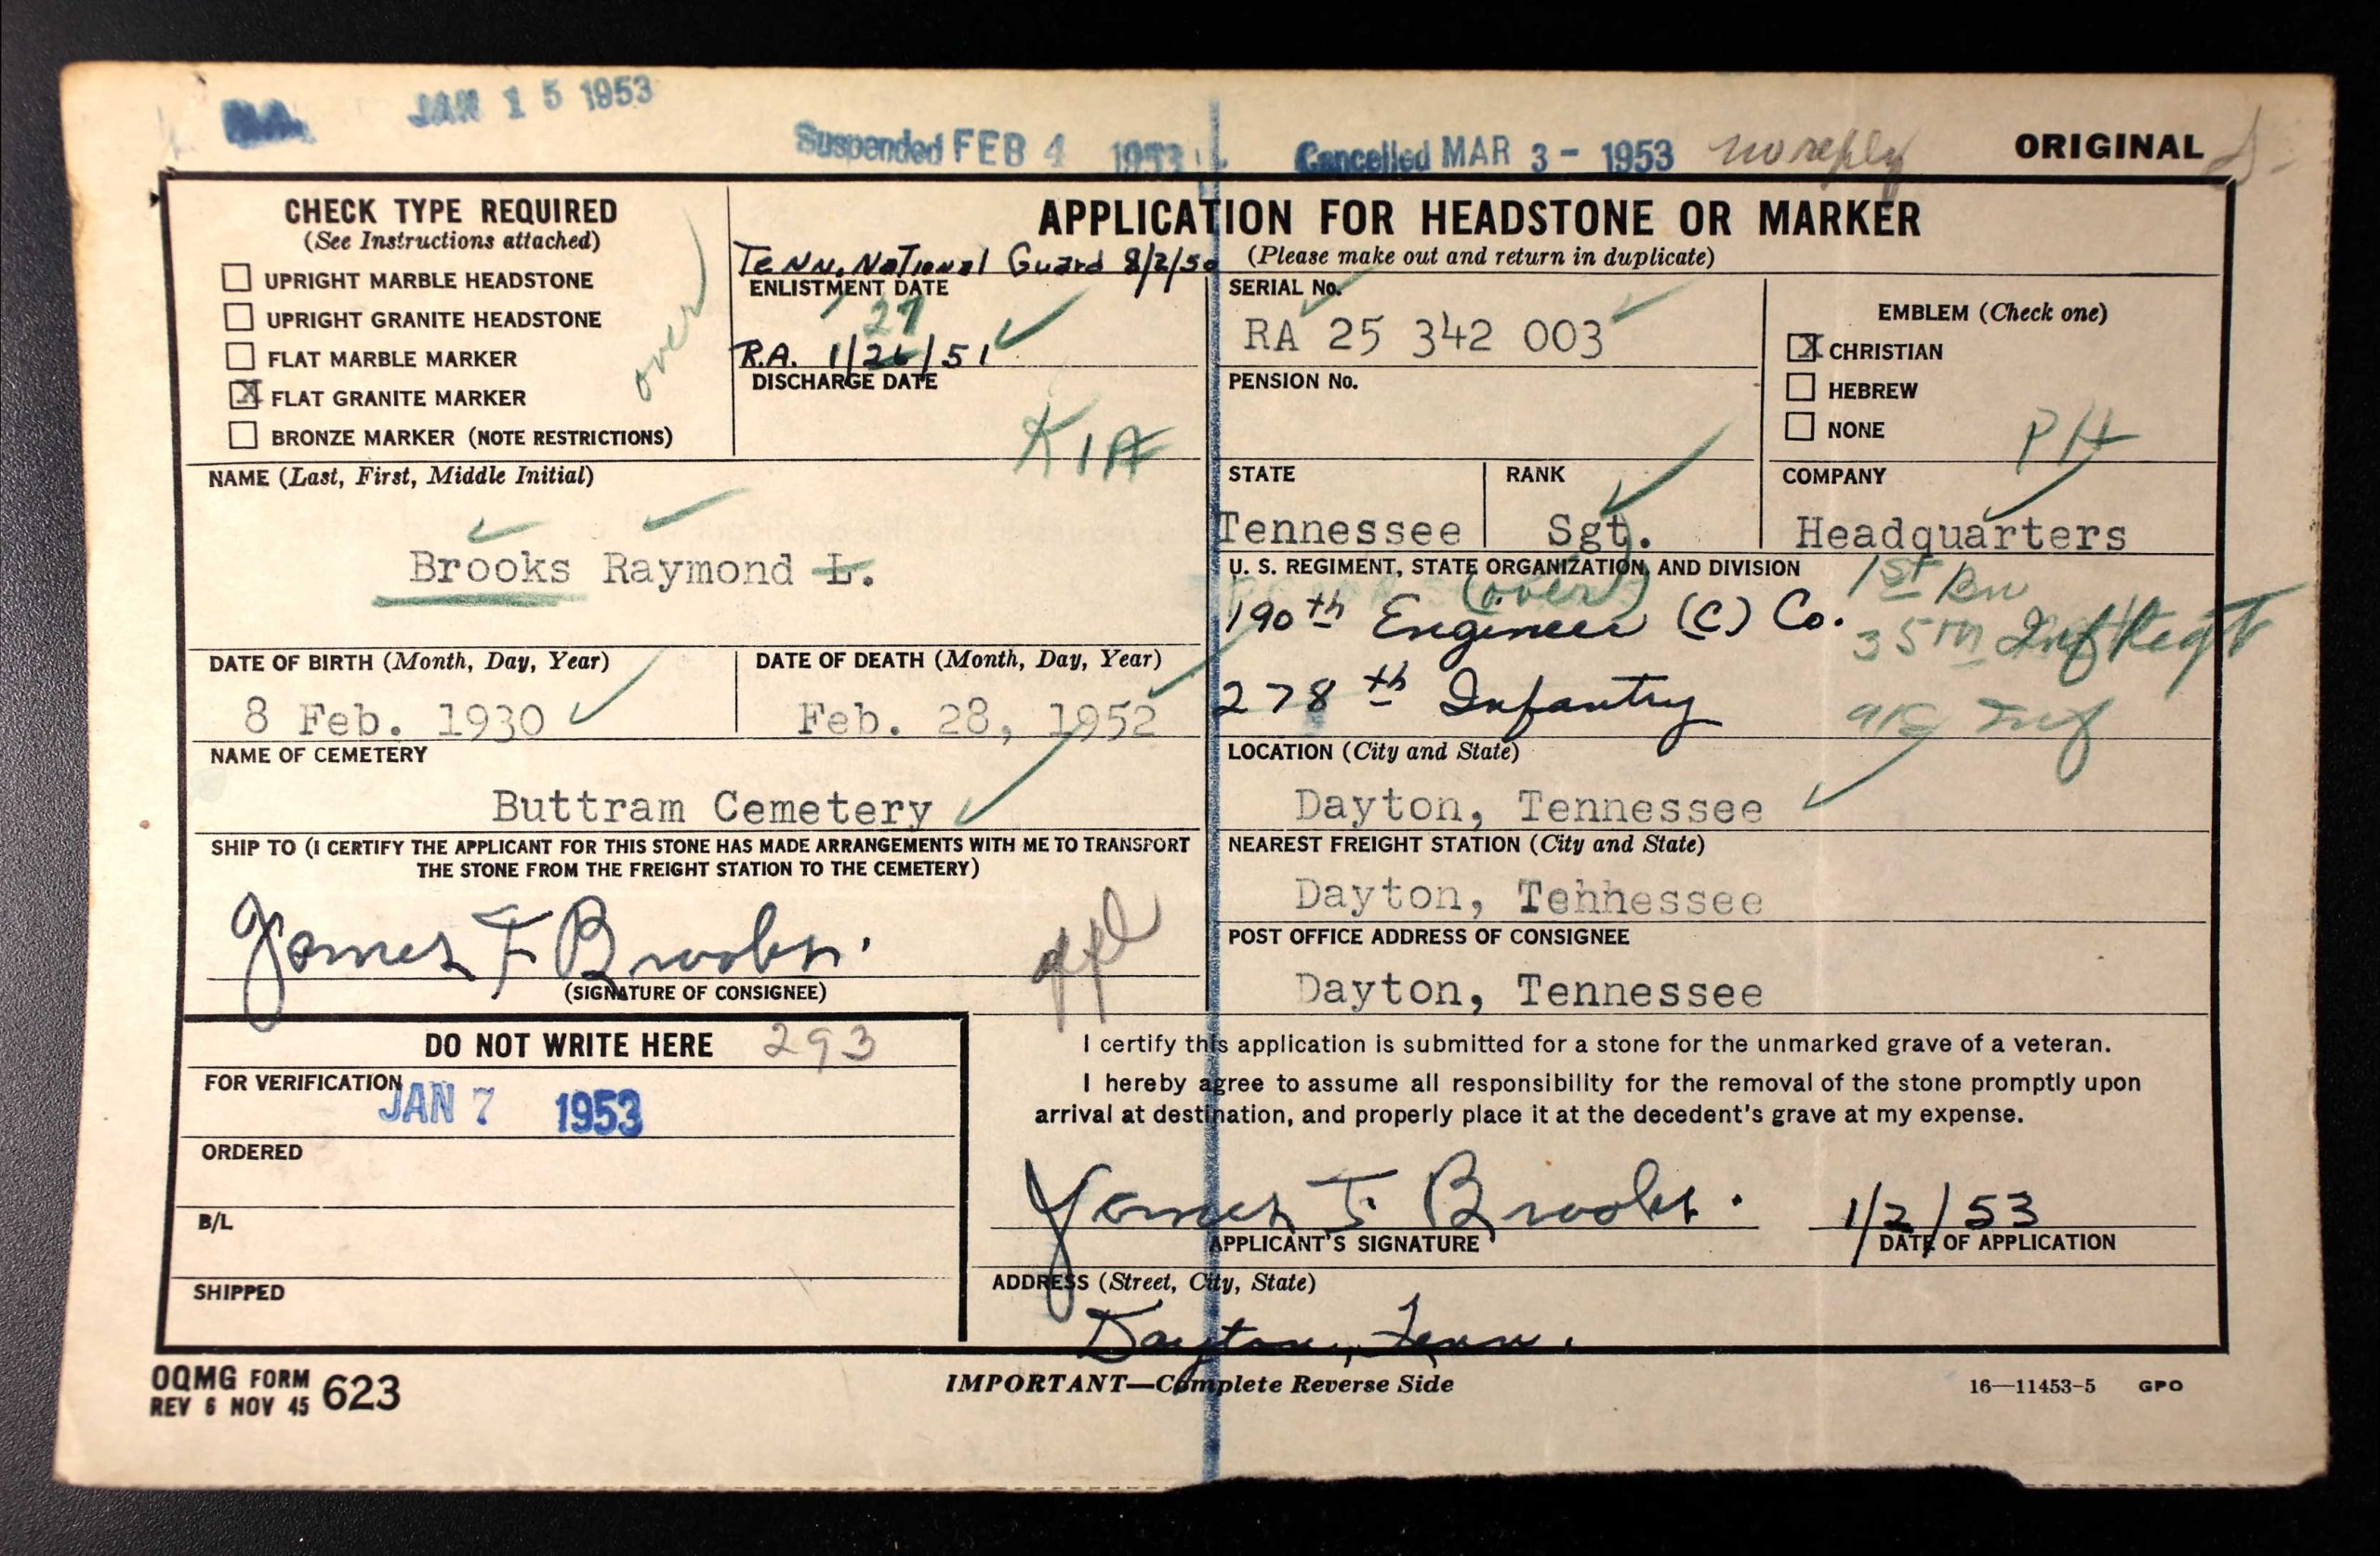 JAN 15 1953
Suspended FEB 4 1953
Cancelled MAR 3 - 1953 no reply
ORIGINAL
CHECK TYPE REQUIRED
(See Instructions attached)
UPRIGHT MARBLE HEADSTONE
UPRIGHT GRANITE HEADSTONE
FLAT MARBLE MARKER
X FLAT GRANITE MARKER
BRONZE MARKER (NOTE RESTRICTIONS)
over
APPLICATION FOR HEADSTONE OR MARKER
(Please make out and return in duplicate)
Tenn. National Guard 8/2/50
ENLISTMENT DATE
27
R.A. 1/26/51
DISCHARGE DATE
KIA
SERIAL No.
RA 25 342 003
PENSION No.
EMBLEM (Check one)
X CHRISTIAN
HEBREW
NONE
PH
NAME (Last, First, Middle Initial)
Brooks Raymond L.
STATE
Tennessee
RANK
Sgt.
COMPANY
Headquarters
U. S. REGIMENT, STATE ORGANIZATION, AND DIVISION
(over)
190th Engineer (C) Co.
278th Infantry
1st Bn
35th Inf Regt
DATE OF BIRTH (Month, Day, Year)
8 Feb. 1930
DATE OF DEATH (Month, Day, Year)
Feb. 28, 1952
NAME OF CEMETERY
Buttram Cemetery
LOCATION (City and State)
Dayton, Tennessee
SHIP TO (I CERTIFY THE APPLICANT FOR THIS STONE HAS MADE ARRANGEMENTS WITH ME TO TRANSPORT
THE STONE FROM THE FREIGHT STATION TO THE CEMETERY)
James F Brooks.
(SIGNATURE OF CONSIGNEE)
NEAREST FREIGHT STATION (City and State)
Dayton, Tehhessee
POST OFFICE ADDRESS OF CONSIGNEE
Dayton, Tennessee
DO NOT WRITE HERE 293
FOR VERIFICATION
JAN 7 1953
ORDERED
B/L
SHIPPED
I certify this application is submitted for a stone for the unmarked grave of a veteran.
I hereby agree to assume all responsibility for the removal of the stone promptly upon
arrival at destination, and properly place it at the decedent's grave at my expense.
James F. Brooks. 1/2/53
APPLICANT'S SIGNATURE DATE OF APPLICATION
ADDRESS (Street, City, State)
Dayton, Tenn.
OQMG FORM 623
REV 6 NOV 45
IMPORTANT—Complete Reverse Side
16—11453-5 GPO